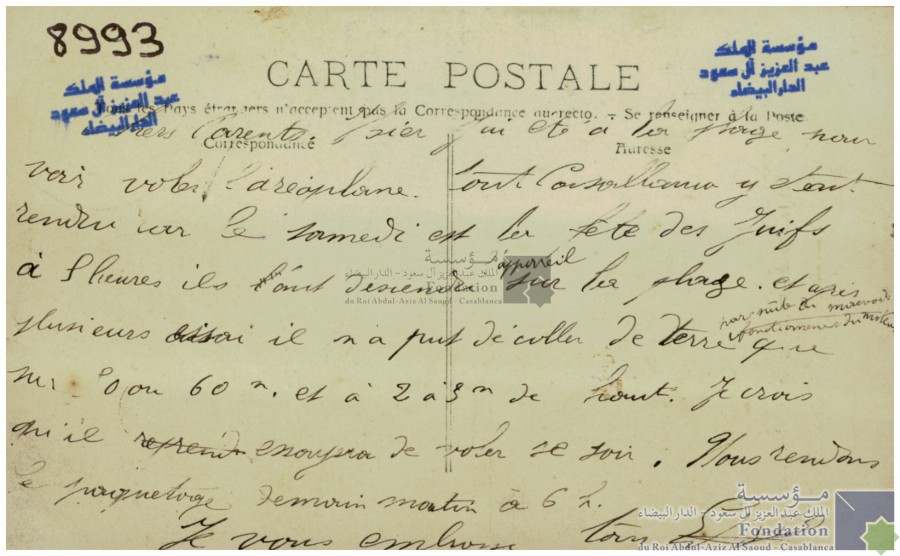 8993
مؤسسة الملك
عبد العزيز آل سعود
الدار البيضاء
CARTE POSTALE
مؤسسة الملك
عبد العزيز آل سعود
الدار البيضاء
Tous les Pays étrangers n'acceptent pas la Correspondance au recto. - Se renseigner à la Poste
Correspondance
Adresse
Chers Parents. Hier j'ai été à la plage pour
voir voler l'aréoplane. tout Casablanca y s'est
rendu car le samedi est la fête des Juifs
à 5 heures ils l'ont descendu appareil sur la plage. et après
par suite du mauvais
fonctionnement du moteur
plusieurs essai il n'a put décoller de terre que
sur 50 ou 60 m. et à 2 à 3m de haut. Je crois
qu'il reprend essayera de voler se soir. Nous rendons
le paquetage demain matin à 6 h.
Je vous embrasse tous
مؤسسة
الملك عبد العزيز آل سعود - الدار البيضاء
Fondation
du Roi Abdul-Aziz Al Saoud - Casablanca
مؤسسة
الملك عبد العزيز آل سعود - الدار البيضاء
Fondation
du Roi Abdul-Aziz Al Saoud - Casablanca